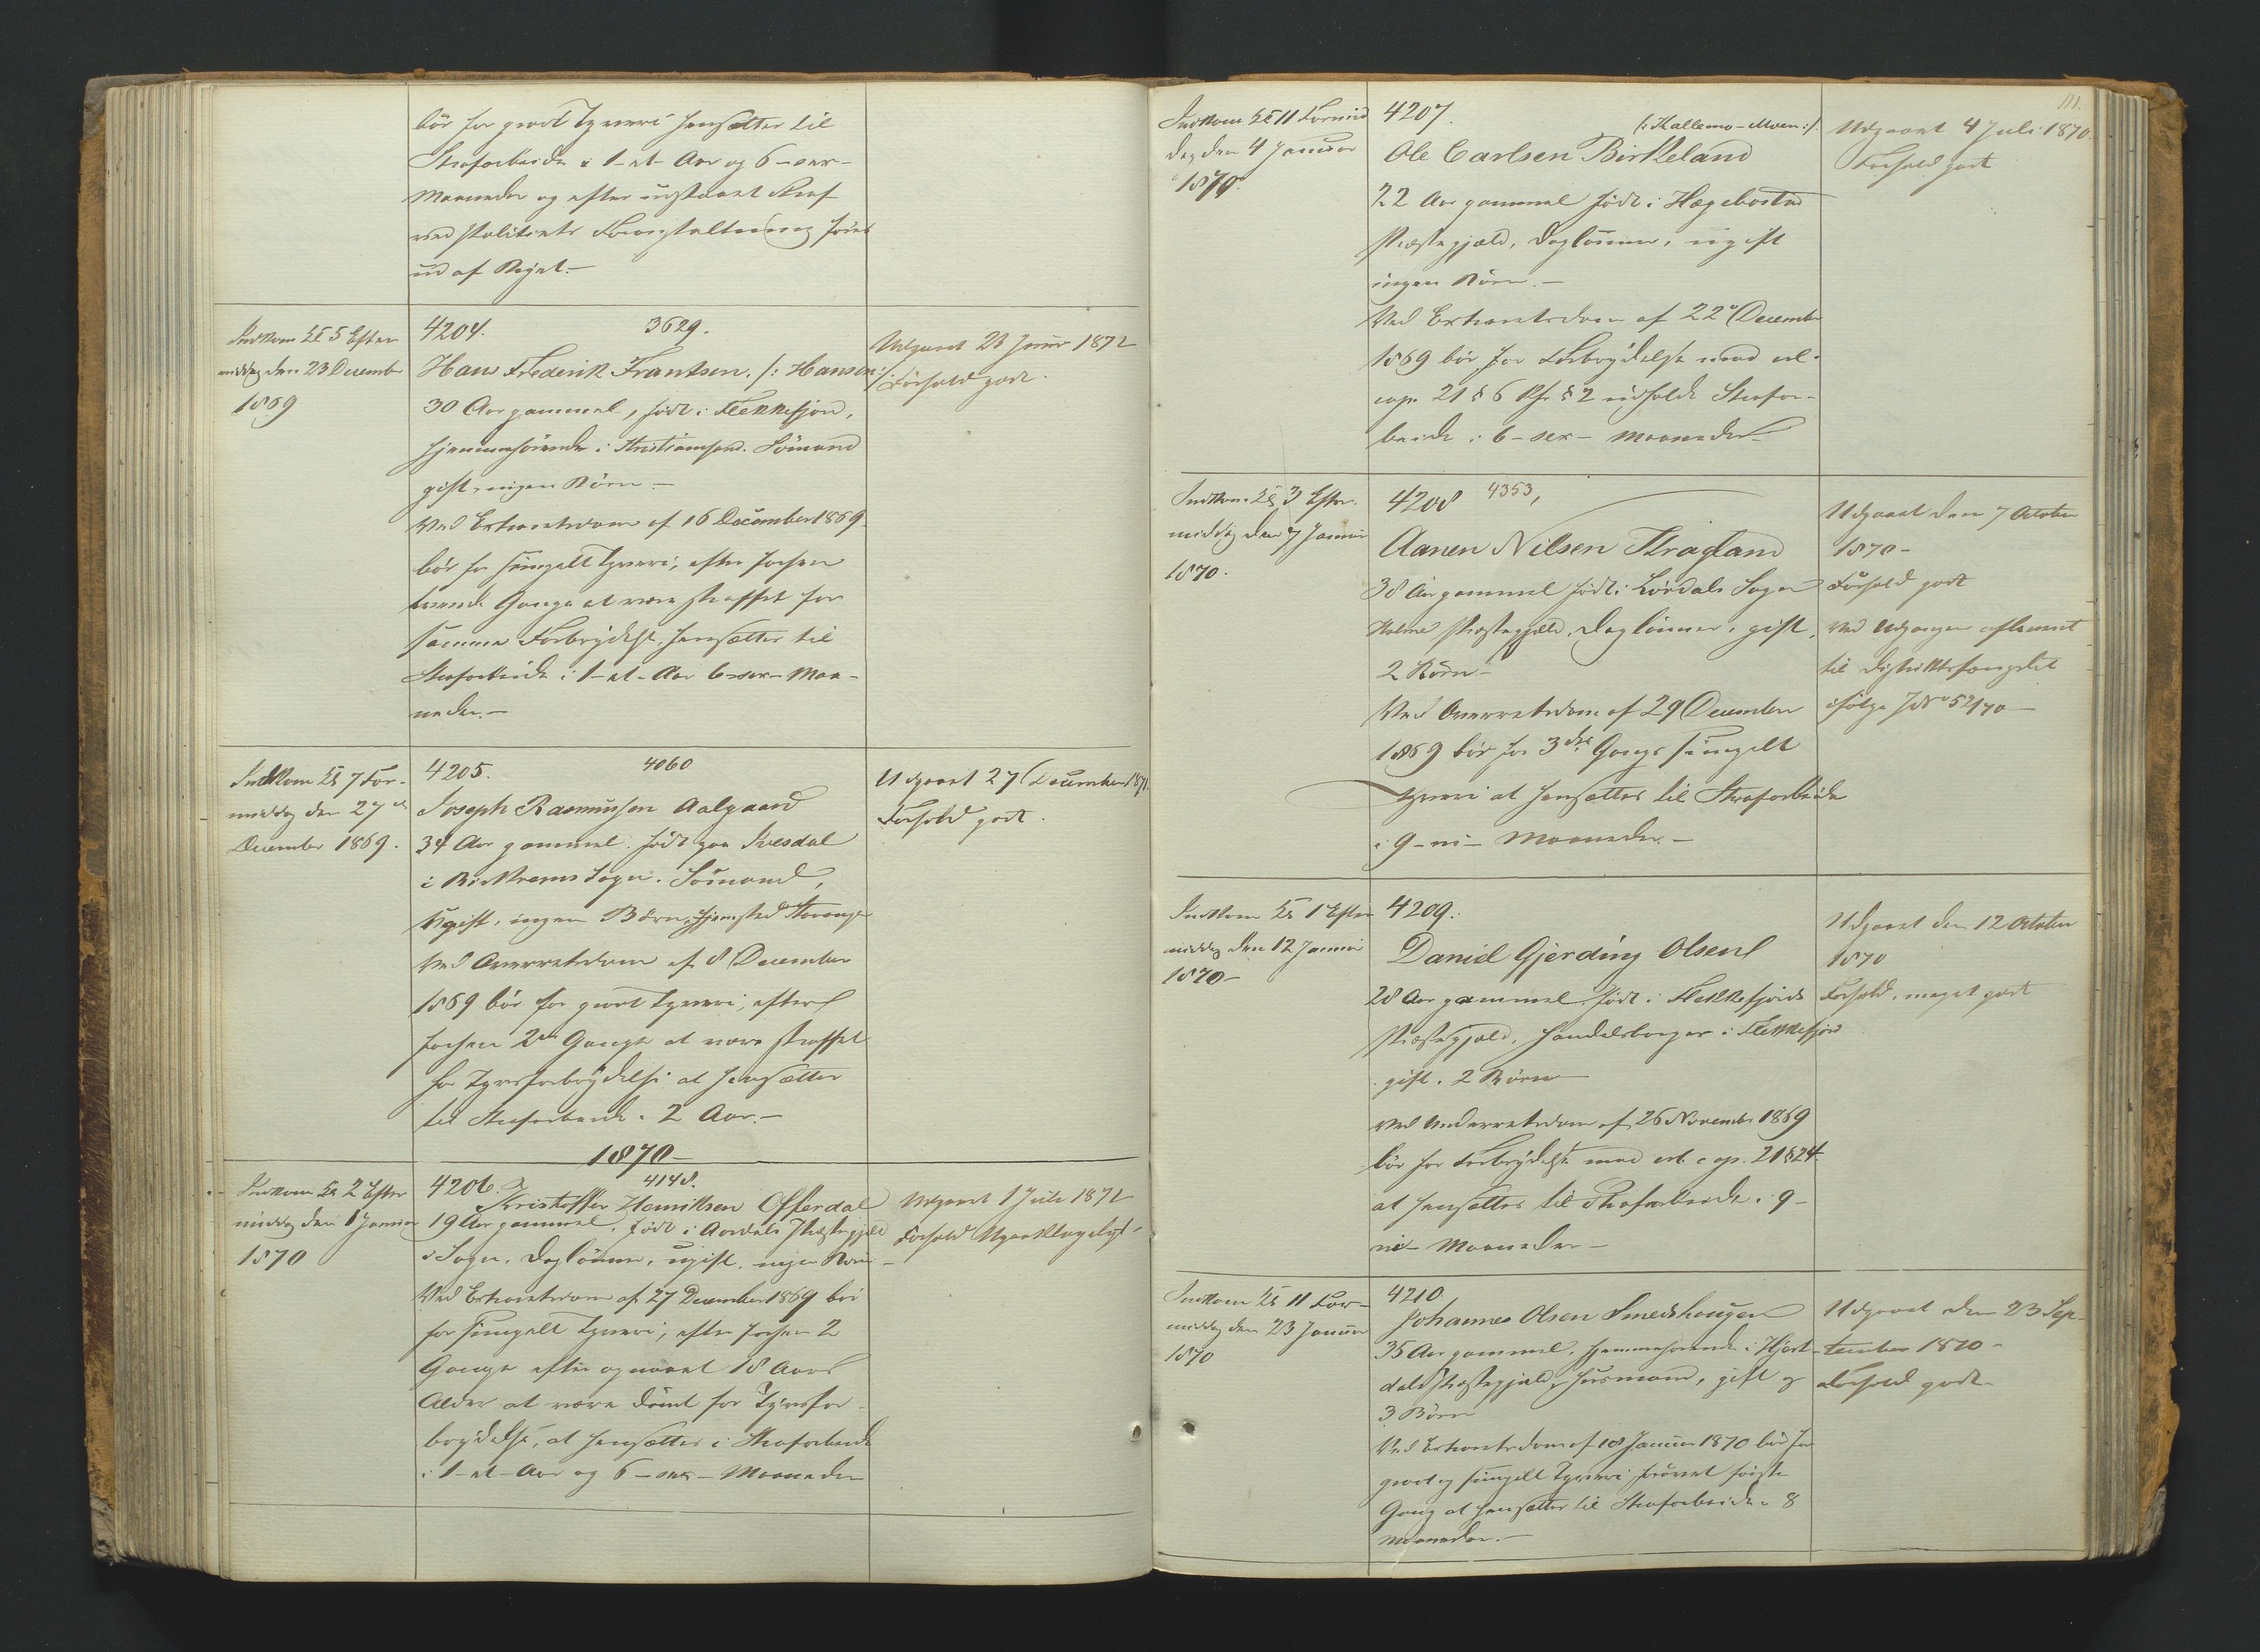 bör for grovt Tyveri hensættes til
Strafarbeide i 1 - et - Aar og 6 - sex -
Maaneder og efter udstaaet Straf
ved Politiets Foranstaltning föres
ud af Riget. -
Indkom Kl 5 Efter
middag den 23 December
1869
4204. 3629.
Hans Frederik Frantsen. /: Hansen :/
30 Aar gammel, födt i Flekkefjord,
hjemmehörende i Kristiansand. Sömand
gift, ingen Börn -
Ved Extraretsdom af 16 December 1869
bör for simpelt Tyveri, efter forhen
tvende Gange at være straffet for
samme Forbrydelse, hensættes til
Strafarbeide i 1 - et - Aar 6 - sex - Maa-
neder. -
Udgaaet 23 Juni 1871
Forhold godt.
Indkom Kl 7 For-
middag den 27de
December 1869.
4205. 4060
Joseph Rasmussen Aalgaard
34 Aar gammel. födt paa
i Birkrems Sogn. Sömand,
Ugift, ingen Börn, Hjemsted Stavanger
Ved Overretsdom af 8 December
1869 bör for grovt Tyveri, efter
forhen 2de Gange at være straffet
for Tyvsforbrydelse at hensættes
til Strafarbeide i 2 Aar. -
Udgaaet 27 December 1871.
Forhold godt.
1870 -
Indkom Kl 2 Efter
middag den 1 Januar
1870
4206. 4148.
Kristoffer Henriksen Offerdal
19 Aar gammel, födt i Aardals Præstegjæld
i Sogn. Daglönner, ugift, ingen Börn -
Ved Extraretsdom af 27 December 1869 bör
for simpelt Tyveri, efter forhen 2
Gange efter opnaaet 18 Aars
Alder at være dömt for Tyvsfor-
brydelse, at hensættes i Strafarbeide
i 1 - et - Aar og 6 - sex - Maaneder
Udgaaet 1 Juli 1871
Forhold Upaaklageligt -
111.
Indkom Kl 11 Formid
dag den 4 Januar
1870.
4207.
/: Kallemo - Moen :/.
Ole Carlsen Birkeland
22 Aar gammel födt i Hægebostad
Præstegjæld, Daglönner, ugift
ingen Börn. -
Ved Extraretsdom af 22de December
1869 bör for Forbrydelse mod
cap. 21 § 6 § 2 udholde Strafar-
beide i 6 - sex - Maaneder -
Udgaaet 4 Juli 1870.
Forhold godt
Indkom Kl 3 Efter-
middag den 7 Januar
1870.
4208 4353,
Aanen Nilsen Kragland
38 Aar gammel födt i Sogn
Holme Præstegjæld. Daglönner, gift,
2 Börn -
Ved Overretsdom af 29 December
1869 bör for 3die Gangs simpelt
Tyveri at hensættes til Strafarbeide
i 9 - ni - Maaneder. -
Udgaaet den 7 October
1870 -
Forhold godt
Ved Udgangen afleveret
til Distriktsfængslet
ifölge J No 52/70 -
Indkom Kl 1 Efter
middag den 12 Januar
1870 -
4209.
Daniel Gjerding Olsen
28 Aar gammel, födt i Flekkefjords
Præstegjæld, Handelsborger i Flekkefjord
gift. 2 Börn -
Ved Underretsdom af 26 November 1869
bör for Forbrydelse mod cap. 21 § 24
at hensættes til Strafarbeide i 9 -
ni - Maaneder -
Udgaaet den 12 October
1870
Forhold, meget godt
Indkom Kl 11 For-
middag den 23 Januar
1870
4210.
Johannes Olsen Smedshougen
35 Aar gammel, hjemmehörende i Hjert-
dals Præstegjæld, Husmand, gift og
3 Börn
Ved Extraretsdom af 18 Januar 1870 bör for
grovt og simpelt Tyveri förste
Gang at hensættes til Strafarbeide i 8
Maaneder. -
Udgaaet den 23 Sep-
tember 1870 -
Forhold godt -